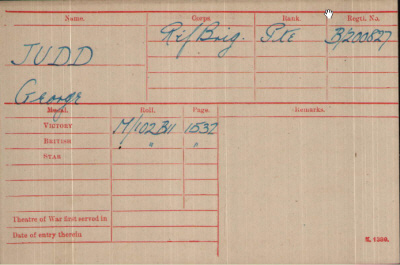 Name. Corps. Rank. Regtl. No.
JUDD Rif/Brig. Pte B/200827
George
Medal. Roll. Page. Remarks.
VICTORY M/102B11 1532
BRITISH " "
STAR
Theatre of War first served in
Date of entry therein
K. 1380.